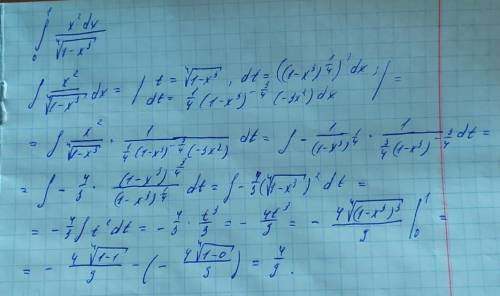 ∫₀¹ x² dx / ∜(1-x³)
∫ x² / ∜(1-x³) dx = | t = ∜(1-x³), dt = ((1-x³)^(1/4))' dx; dt = 1/4 (1-x³)^(-3/4) (-3x²) dx | =
= ∫ x² / ∜(1-x³) · 1 / (1/4 (1-x³)^(-3/4) (-3x²)) dt = ∫ - 1 / (1-x³)^(1/4) · 1 / (3/4 (1-x³)^(-3/4)) dt =
= ∫ - 4/3 · (1-x³)^(3/4) / (1-x³)^(1/4) dt = ∫ - 4/3 (∜(1-x³))² dt =
= - 4/3 ∫ t² dt = - 4/3 · t³/3 = - 4t³/9 = - 4∜(1-x³)³ / 9 |₀¹ =
= - 4∜(1-1) / 9 - (- 4∜(1-0) / 9) = 4/9.